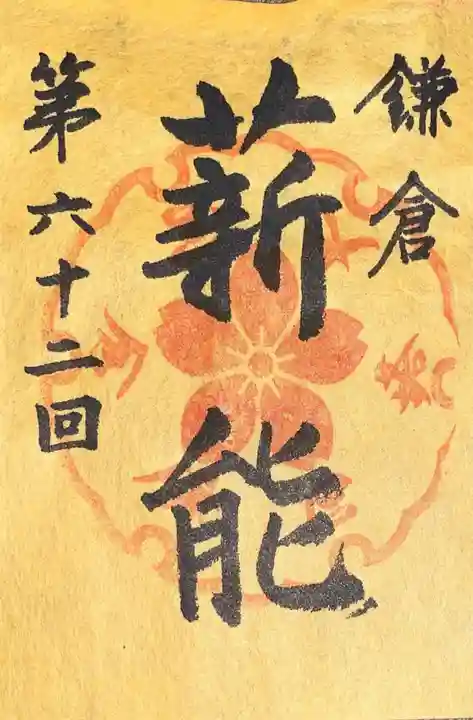 鎌倉
薪能
第六十二回